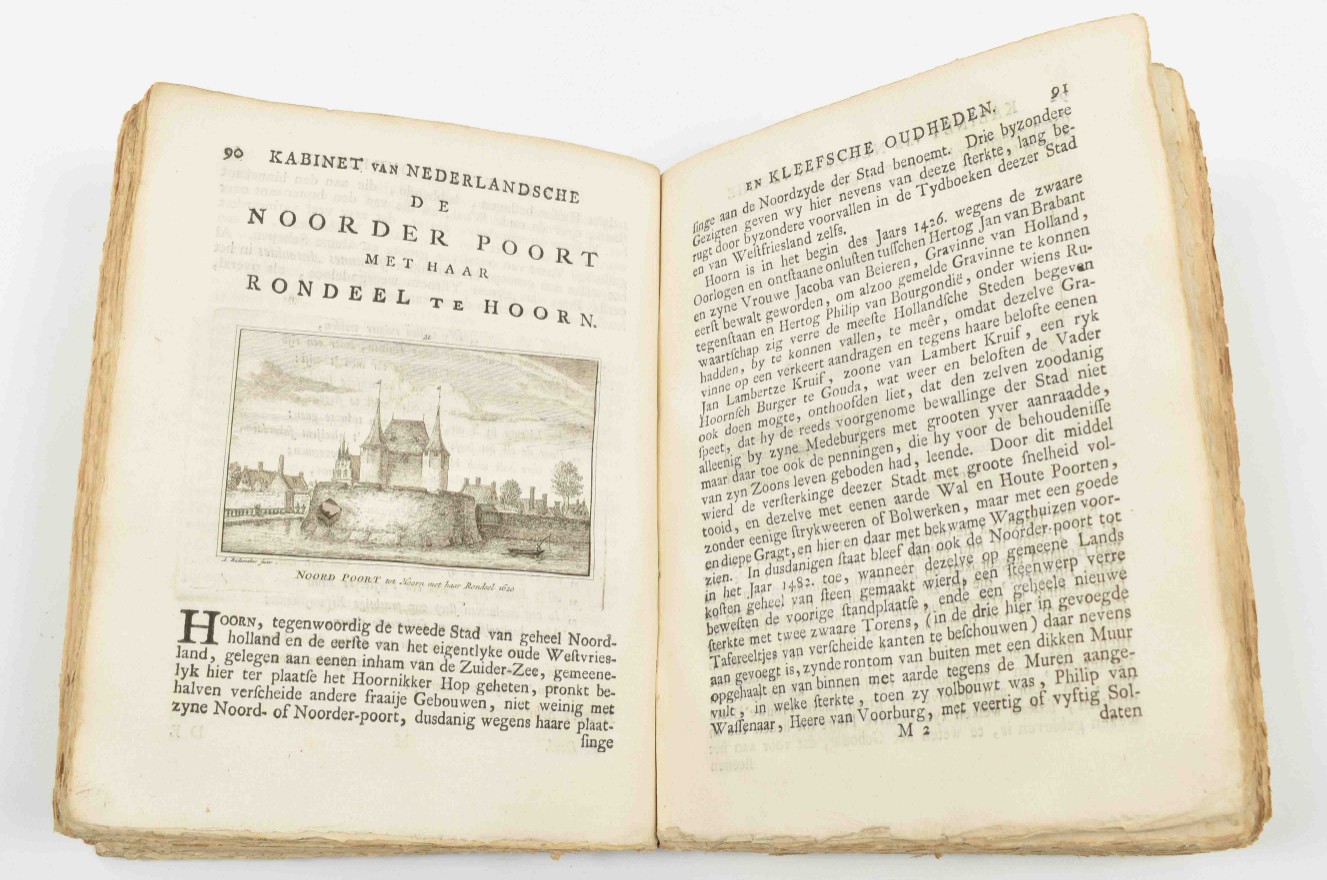 90 KABINET VAN NEDERLANDSCHE
DE
NOORDER POORT
MET HAAR
RONDEEL TE HOORN.
NOORD POORT tot Hoorn met haar Rondeel 1620
HOORN, tegenwoordig de tweede Stad van geheel Noord-
holland en de eerſte van het eigentlyke oude Weſtvries-
land, gelegen aan eenen inham van de Zuider-Zee, gemeene-
lyk hier ter plaatſe het Hoornikker Hop geheten, pronkt be-
halven verſcheide andere fraaije Gebouwen, niet weinig met
zyne Noord- of Noorder-poort, dusdanig wegens haare plaat-
ſinge
EN KLEEFSCHE OUDHEDEN. 91
ſinge aan de Noordzyde der Stad benoemt. Drie byzondere
Gezigten geven wy hier nevens van deeze ſterkte, lang be-
rugt door byzondere voorvallen in de Tydboeken deezer Stad
en van Weſtfriesland zelfs.
Hoorn is in het begin des Jaars 1426. wegens de zwaare
Oorlogen en ontſtaane onluſten tuſſchen Hertog Jan van Brabant
en zyne Vrouwe Jacoba van Beieren, Gravinne van Holland,
eerſt bewalt geworden, om alzoo gemelde Gravinne te konnen
tegenſtaan en Hertog Philip van Bourgondië, onder wiens Ru-
waartſchap zig verre de meeſte Hollandſche Steden begeven
hadden, by te konnen vallen, te meêr, omdat dezelve Gra-
vinne op een verkeert aandragen en tegens haare belofte eenen
Jan Lambertze Kruif, zoone van Lambert Kruif, een ryk
Hoornſch Burger te Gouda, wat weer en beloften de Vader
ook doen mogte, onthoofden liet, dat den zelven zoodanig
ſpeet, dat hy de reeds voorgenome bewallinge der Stad niet
alleenig by zyne Medeburgers met grooten yver aanraadde,
maar daar toe ook de penningen, die hy voor de behoudeniſſe
van zyn Zoons leven geboden had, leende. Door dit middel
wierd de verſterkinge deezer Stad met groote ſnelheid vol-
tooid, en dezelve met eenen aarde Wal en Houte Poorten,
zonder eenige ſtrykweeren of Bolwerken, maar met een goede
en diepe Gragt, en hier en daar met bekwame Wagthuizen voor-
zien. In dusdanigen ſtaat bleef dan ook de Noorder-poort tot
in het Jaar 1482. toe, wanneer dezelve op gemeene Lands
koſten geheel van ſteen gemaakt wierd, een ſteenwerp verre
beweſten de voorige ſtandplaatſe, ende een geheele nieuwe
ſterkte met twee zwaare Torens, (in de drie hier in gevoegde
Tafereeltjes van verſcheide kanten te beſchouwen) daar nevens
aan gevoegt is, zynde rontom van buiten met een dikken Muur
opgehaalt en van binnen met aarde tegens de Muren aange-
vult, in welke ſterkte, toen zy volbouwt was, Philip van
Waſſenaar, Heere van Voorburg, met veertig of vyftig Sol-
M 2 daten